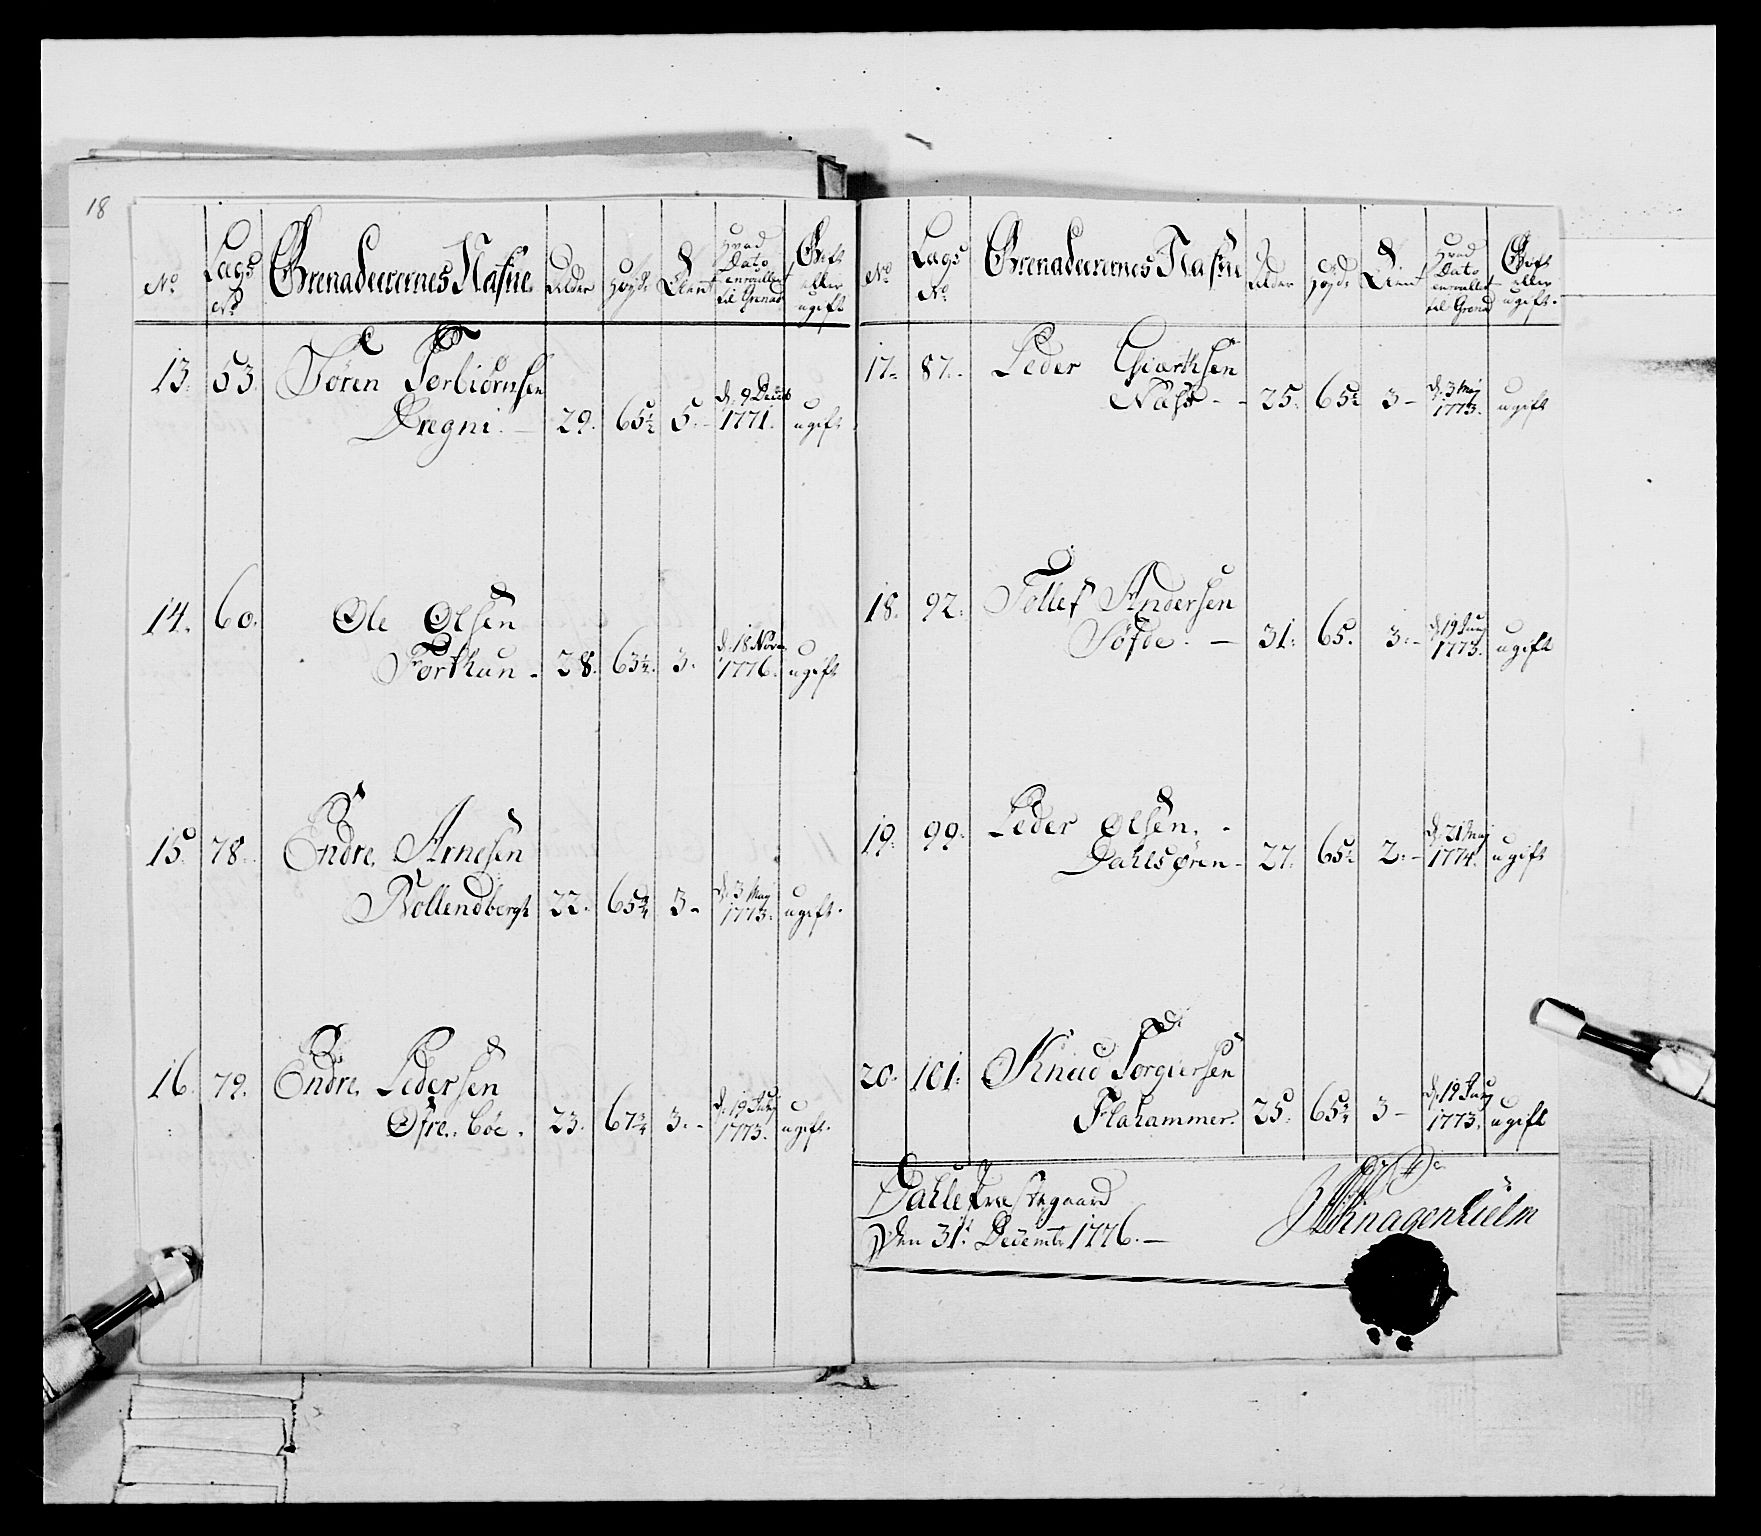 18
No
Lags No
Grenadeerernes Nafne
Alder
Høyde
Tient
Hvad Dato enroullert til Grenad
Gift eller ugift
13. 53. Sören Torbiörnsen
Dregni. — 29. 65½ 5. — d. 9 Decemb 1771. ugift
14. 60. Ole Olsen
Forthun — 28. 63½. 3. d. 18 Novr. 1776. ugift
15. 78. Endre Arnesen
Nollendbergh 22. 65¾ 3 — d. 3 May 1773. ugift.
16. 79. Endre Pedersen
Øfre Böe. 23. 67¾ 3. — d. 19 Juny 1773. ugift.
No
Lags No
Grenadeerernes Nafne
Alder
Høyde
Tient
Hvad Dato enroullert til Grenad
Gift eller ugift.
17. 87. Peder
Næss — 25. 65½ 3 — d. 3 May 1773. ugift
18. 92. Tollef Andersen
Söfde. — 31. 65. 3. — d. 19 Juny 1773. ugift
19. 99. Peder Olsen. —
Dahlsøren — 27. 65½ 2. — d. 21 May 1774. ugift
20. 101. Knud Torgiersen
Flahammer. 25. 65¾ 3 — d. 19 Juny 1773. ugift
Dahle Præstegaard
Den 31t. Decembr 1776. —
Knagenhielm